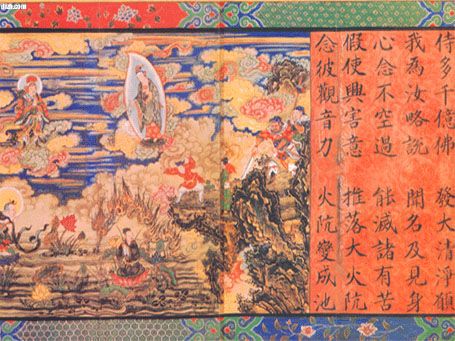 侍多千億佛 發大清淨願
我為汝略說 聞名及見身
心念不空過 能滅諸有苦
假使興害意 推落大火阬
念彼觀音力 火阬變成池